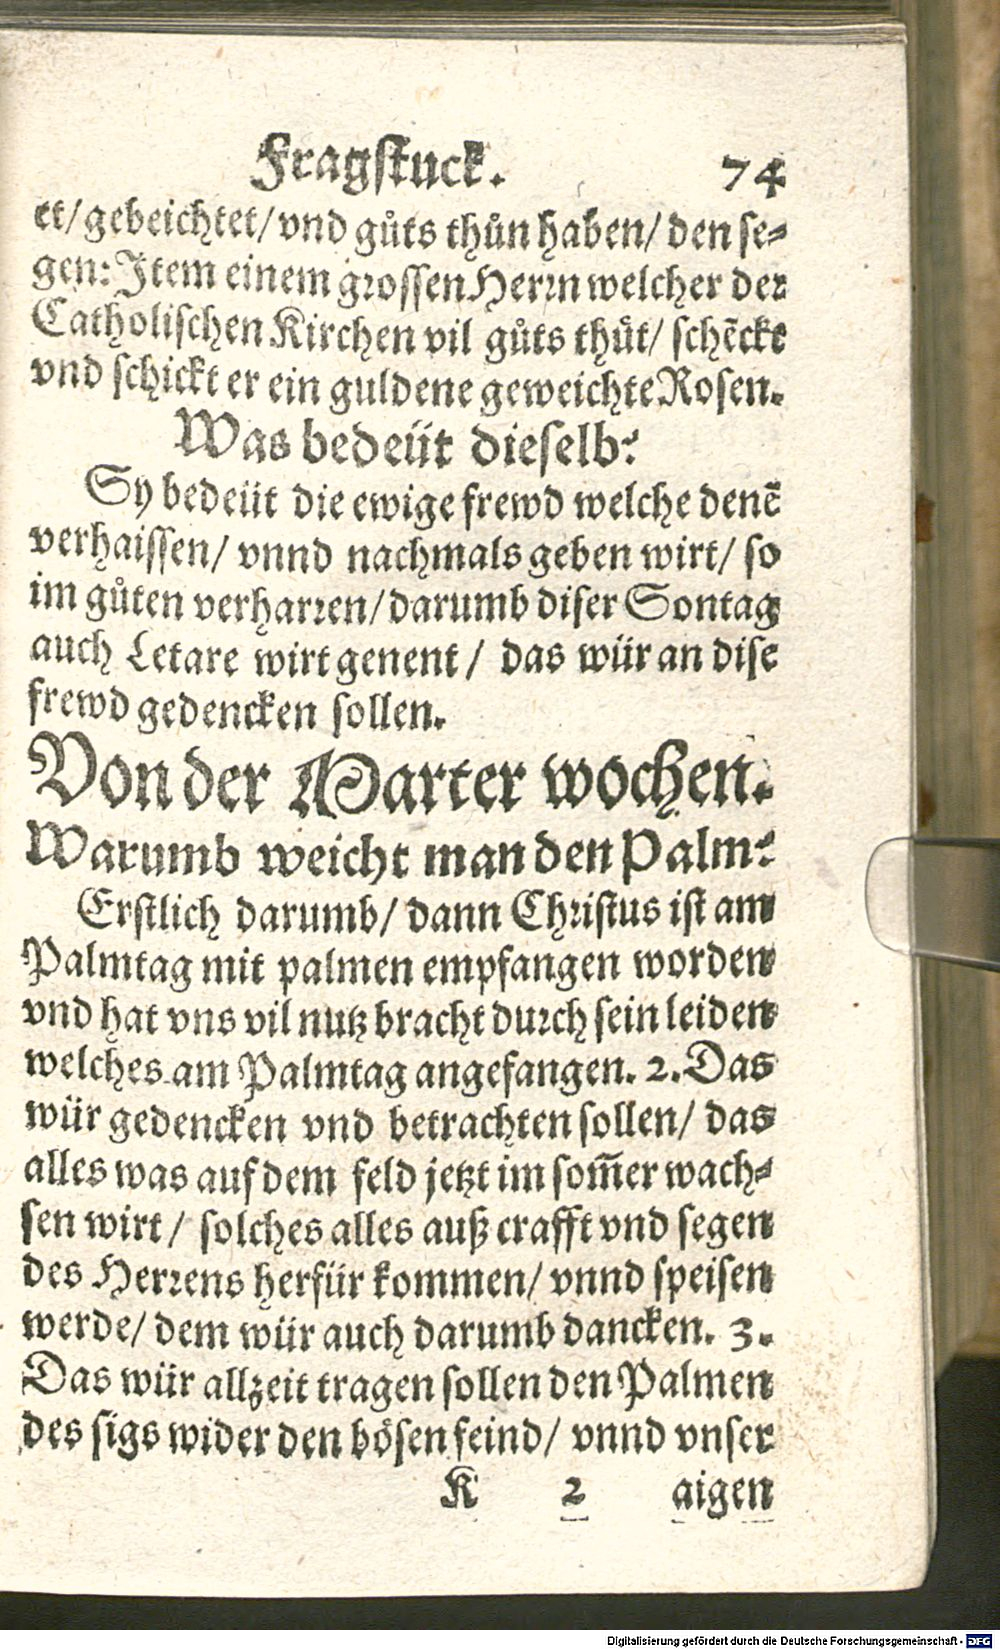 Fragſtuck. 74
et/ gebeichtet/ vnd gůts thůn haben/ den ſe⸗
gen: Jtem einem groſſen Herꝛn welcher der
Catholiſchen Kirchen vil gůts thůt/ ſchẽckt
vnd ſchickt er ein guldene geweichte Roſen.
Was bedeüt dieſelb?
Sy bedeüt die ewige frewd welche denẽ
verhaiſſen/ vnnd nachmals geben wirt/ ſo
im gůten verharꝛen/ darumb diſer Sontag
auch Letare wirt genent/ das wür an diſe
frewd gedencken ſollen.
Von der Marter wochen.
Warumb weicht man den Palm?
Erſtlich darumb/ dann Chꝛiſtus iſt am
Palmtag mit palmen empfangen worden
vnd hat vns vil nutz bracht durch ſein leiden
welches am Palmtag angefangen. 2. Das
wür gedencken vnd betrachten ſollen/ das
alles was auf dem feld jetzt im ſom̃er wach⸗
ſen wirt/ ſolches alles auß crafft vnd ſegen
des Herꝛens herfür kommen/ vnnd ſpeiſen
werde/ dem wür auch darumb dancken. 3.
Das wür allzeit tragen ſollen den Palmen
des ſigs wider den böſen feind/ vnnd vnſer
K 2 aigen
Digitalisierung gefördert durch die Deutsche Forschungsgemeinschaft - DFG